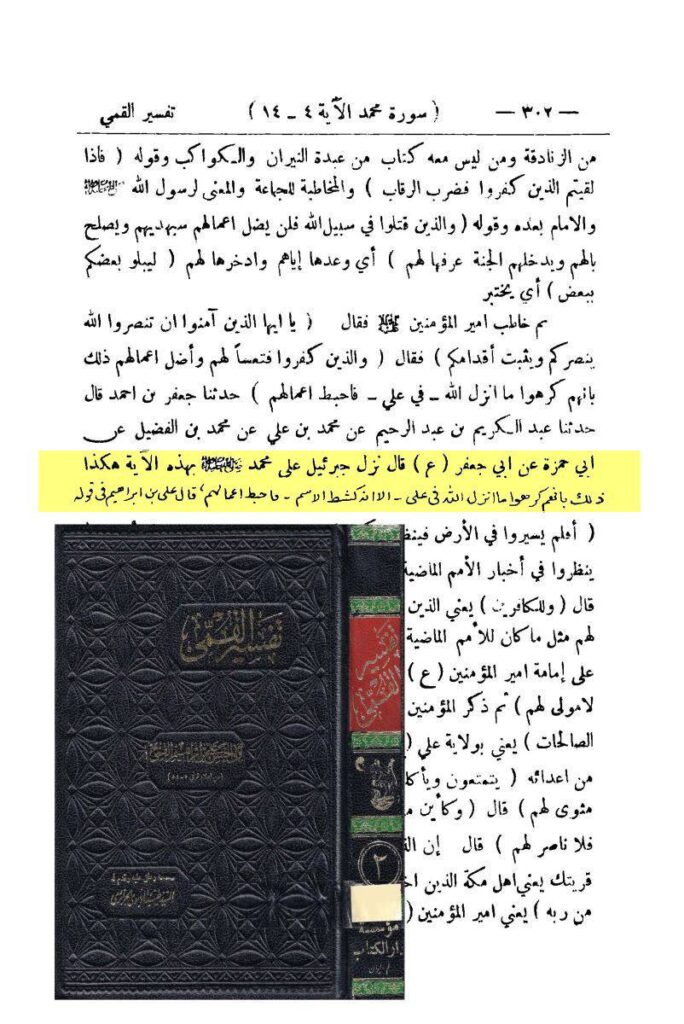 — ٣٠٢ — ( سورة محمد الآية ٤ ـ ١٤ ) تفسير القمي
من الزنادقة ومن ليس معه كتاب من عبدة النيران والكواكب وقوله ( فاذا
لقيتم الذين كفروا فضرب الرقاب ) والمخاطبة للجماعة والمعنى لرسول الله
والامام بعده وقوله ( والذين قتلوا في سبيل الله فلن يضل اعمالهم سيهديهم ويصلح
بالهم ويدخلهم الجنة عرفها لهم ) أي وعدها إياهم وادخرها لهم ( ليبلو بعضكم
ببعض ) أي يختبر
ثم خاطب امير المؤمنين فقال ( يا ايها الذين آمنوا ان تنصروا الله
ينصركم ويثبت أقدامكم ) فقال ( والذين كفروا فتعساً لهم وأضل اعمالهم ذلك
بانهم كرهوا ما انزل الله ـ في علي ـ فاحبط اعمالهم ) حدثنا جعفر بن احمد قال
حدثنا عبد الكريم بن عبد الرحيم عن محمد بن علي عن محمد بن الفضيل عن
ابي حمزة عن ابي جعفر ( ع ) قال نزل جبرئيل على محمد بهذه الآية هكذا
ذلك بانهم كرهوا ما انزل الله في على - الا انه كشط الاسم - فاحبط اعمالهم، قال على بن ابراهيم فى قوله
( أفلم يسيروا في الأرض
ينظروا في أخبار الأمم الماضية
قال ( وللكافرين ) يعني الذين
لهم مثل ما كان للأمم الماضية
على إمامة امير المؤمنين ( ع )
لامولى لهم ) ثم ذكر المؤمنين
الصالحات ) يعني بولاية علي (
من اعدائه ( يتمتعون
مثوى لهم ) قال ( وكأين
فلا ناصر لهم ) قال إن
قريتك يعني اهل مكة الذين
من ربه ) يعني امير المؤمنين (
تفسير القمي
تفسير القمي
٢
مؤسسة
دار الكتاب